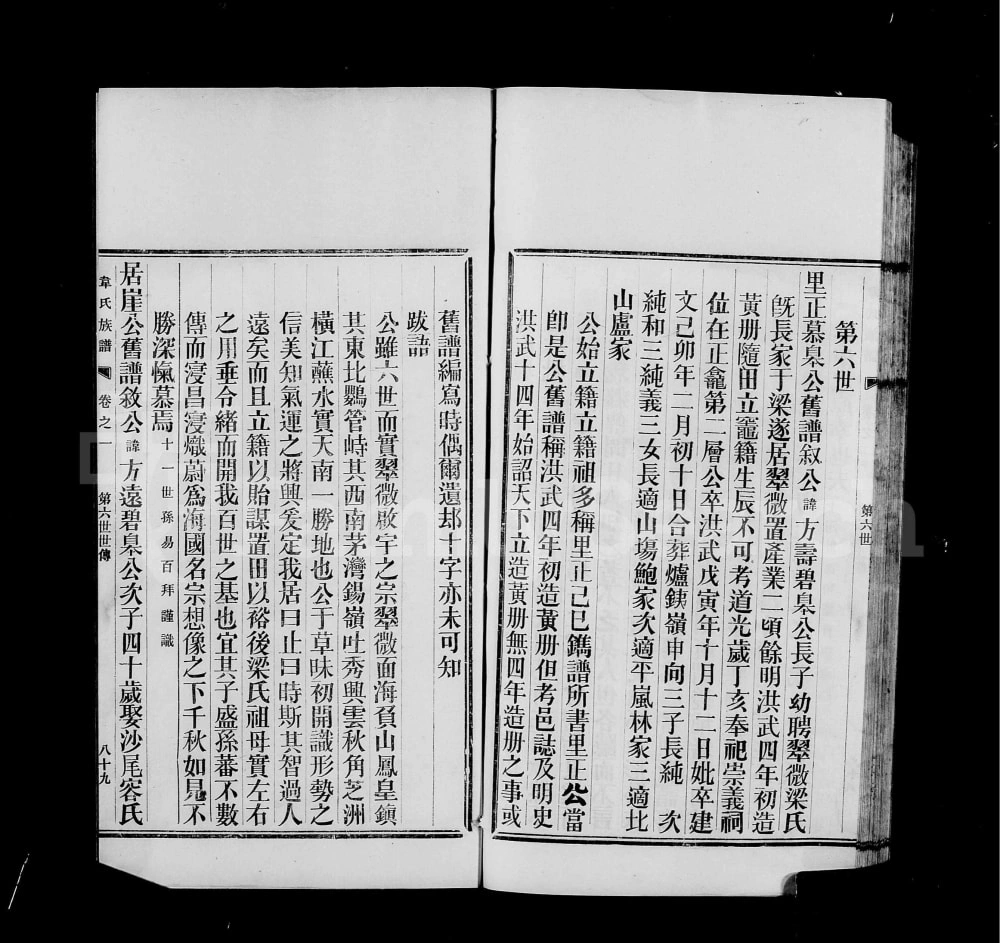 第六世
第六世
里正慕臯公舊譜敘公諱方壽碧臯公長子幼聘翠微梁氏
旣長家于梁遂居翠微置產業二頃餘明洪武四年初造
黃册隨田立竈籍生辰不可考道光歲丁亥奉祀崇義祠
位在正龕第二層公卒洪武戊寅年十月十二日妣卒建
文己卯年二月初十日合葬爐鉄嶺申向三子長純 次
純和三純義三女長適山塲鮑家次適平嵐林家三適北
山盧家
公始立籍立籍祖多稱里正己巳鐫譜所書里正公當
卽是公舊譜稱洪武四年初造黃册但考邑誌及明史
洪武十四年始詔天下立造黃册無四年造册之事或
舊譜編寫時偶爾遺却十字亦未可知
跋語
公雖六世而實翠微啟宇之宗翠微面海負山鳳皇鎮
其東北鸚管峙其西南茅灣錫嶺吐秀興雲秋角芝洲
橫江蘸水實天南一勝地也公于草昧初開識形勢之
信美知氣運之將興爰定我居曰止曰時斯其智過人
遠矣而且立籍以貽謀置田以裕後梁氏祖母實左右
之用垂令緒而開我百世之基也宜其子盛孫蕃不數
傳而寖昌寖熾蔚爲海國名宗想像之下千秋如見不
勝深愾慕焉十一世孫易百拜謹識
居崖公舊譜敘公諱方遠碧臯公次子四十歲娶沙尾容氏
韋氏族譜 卷之一 第六世世傳 八十九